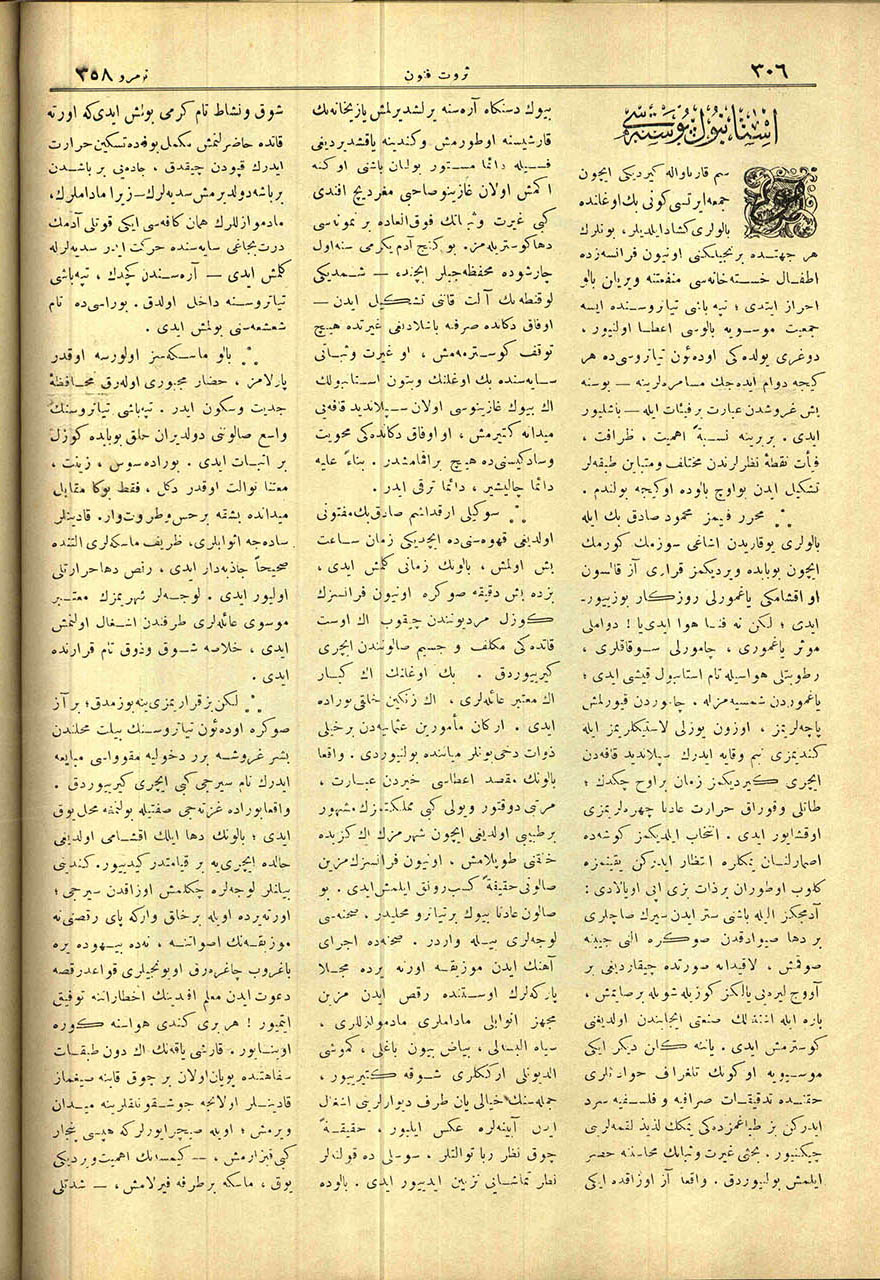 ٣٠٦
ثروت فنون
نومرو ٣٥٨
استانبول پوسته‌سی
سم قارناواله كیردیكی ایچون
جمعه ایرتسی كونی بك اوغلنده
بالولری كشاد ایلدیلر، بونلرك
هر جهتـده برنجیلكنی اونیون فرانسه‌زده
اطفـال خسـته‌خانه‌سی منفعتنه ویریلن بالو
احراز ایتدی ؛ تپه باشی تیاتروسنده ایسه
جمعیت موسـویه بالوسی اعطـا اولنیور ،
دوغری یولده‌كی اوده‌ئون تیاتروسی‌ده هر
كیجه دوام ایده‌جك مسامره‌لرینه — یوسته
بش غروشدن عبارت بر فیئات ایله — باشلیور
ایدی . بربرینه نسبةً اهمیت ، ظرافت ،
فیأت نقطهٔ نظرلرندن مختلف ومتباین طبقه‌لر
تشكیل ایدن بواوچ بالوده اوكیجه بولندم .
محرر فیمز محمود صادق بك ایله
بالولری یوقاریدن اشاغی سوزمك كورمك
ایچون بوبابده ویردیكمز قراری آز قالسون
او اقشامكی یاغمورلی روزكار بوزیور-
ایدی ؛ لكن نه فنـا هوا ایدی‌یا ! دواملی
موثر یاغموری ، چامورلی سوقاقلری ،
رطوبتلی هواسیله تام استانبول قیشی ایدی ؛
یاغموردن شمسیه‌مزله . چاموردن قیورلمش
پاچه‌لریمز ، اوزون یوزلی لاستیكلریمز ایله
كندیمزی نیم وقایه ایدرك سپلاندید قافه‌دن
ایچری كیردیكمز زمان براوح چكدك ؛
طاتلی وقوراق حرارت عادتا چهره‌لریمزی
اوقشایور ایدی . انتخاب ایلدیكمز كوشه‌ده
اصمارلنان یمكلره انتظار ایدركن یقینمزه
كلوب اوطوران برذات بزی اپی اویالادی :
آدمجكز الیله باشی ستر ایدن سیرك صاچلری
بر دها صیوادقدن صوكره الی جیبنه
صوقمش ، لاقیدانه صورتده چیقاردیغی بر
آووج لیره‌یی یالكز كوزیله شویله برصایمش ،
پاره ایله اشتغالك صنعتی ایجابندن اولدیغنی
كوسترمش ایدی . یاننه كلن دیكر ایكی
موسیویه اوكونك تلغراف حوادثلری
حقنـده تدقیقـات صرافیه و فلسفیه سرد
ایدركن بز طباغمزده‌كی یمكك لذیذ لقمه‌لرینی
چیكنیور . بحثی غیرت وثباتك محاسننه حصر
ایلمش بولنیوردق . واقعا آز اوزاقده ایكی
بیوك دستكاه آره‌سنه یرلشدیرلمش یازیخانه‌نك
قارشیسنه اوطورمش وكندینه یاقشدیردیغی
فسیله دائمـا مسـتور بولنان باشنی اوكنه
اكمش اولان غازینوصاحبی مغردیچ افندی
كبی غیرت وثبـاتك فوق‌العاده بر نمونه‌سی
دهاكوستریله‌مز. بوكنج آدم یكرمی سنه‌اول
چارشوده محفظه‌جیلر ایچنده ، — شمدیكی
لوقنطه‌نك آلت قاتنی تشكیل ایدن —
اوفاق دكانده صرفنه باشلادیغی غیرتده هیچ
توقف كوسترمه‌مش ، او غیرت وثبـاتی
سایه‌سنده بك اوغلنك وبتون استانبولك
اك بیوك غازینوسی اولان سپلاندید قافه‌یی
میدانه كتیرمش ، اواوفاق دكانده‌كی محویت
وساده‌كیسنی‌ده هیچ براقمامشدر . بناءً علیه
دائما چالیشیر ، دائما ترقی ایدر .
سوكیلی ارقداشم صادق‌بك مفتونی
اولدیغی قهوه‌سنی‌ده ایچدیكی زمان ساعت
بش اولمش ، بالونك زمانی كلمش ایدی ،
بزده بش دقیقه صوكره اونیون فرانسزك
كوزل مردیونندن چیقوب اك اوست
قاتده‌كی مكلف و جسیم صالونندن ایچری
كیرییوردق . بك اوغلنك اك كبار
اك معتبر عائله‌لری ، اك زنكین خلقی بوراده
ایدی . اركان مأمورین عثمانیه‌دن برخیلی
ذوات دخی‌بونلر میاننده بولنیوردی . واقعا
بالونك مقصد اعطاسی خیردن عبارت ،
مرتبی دوقتور ویولی كبی مملكتـزك مشهور
برطبیبی اولدیغی ایچون شهرمزك اك گزیده
خلقنی طوپلامش ، اونیون فرانسزك مزین
صالونی حقیقةً كسب‌رونق ایلمش‌ایدی . بو
صالون عادتا بیوك برتیاترو محلیدر . صحنه‌سی
لوجه‌لری بیـله واردر . صحنه‌ده اجرای
آهنك ایدن موزیقـه اورته یرده مجـلا
پاركه‌لرك اوستنده رقص ایدن مزین
مجهز اثوابلی مادامـلری مادموازللری ،
سیاه البسه‌لی ، بیاض بیون باغلی ، كموشی
الدیونلی ارككلری شـوقه كتیرییور ،
جمله‌سنك خیالی یان طرف دیوارلرینی اشغال
ایدن آیینه‌لره عكس ایلیور ، حقیقـةً
چوق نظر ربا توالتلر ، سوسلی ده قولته‌لر
نظر تماشـایی تزیین ایدییور ایدی . بالوده
شوق ونشاط تام كرمی بولمش ایدی‌كه اورته
قاتده حاضرلنمش مكمل بوفه‌ده تسكین حرارت
ایدرك قپودن چیقدق ، جاده‌یی بر باشـدن
برباشه دولدیرمش سدیه‌لرك — زیرا ماداملرك،
مادموازللرك همان كافه‌سی ایكی قوتلی آدمك
درت بجاغی سایه‌سنده حركت ایدر سدیه‌لرله
كلمش ایدی — آره‌سندن كچدك ، تپه‌باشی
تیاتروسنه داخل اولدق. بوراسی‌ده تام
شعشعه‌سنی بولمش ایدی .
بالو ماسكه‌سز اولورسه اوقدر
پارلامز ، حضار مجبوری اوله‌رق محـافظهٔ
جدیت وسكون ایدر . تپه‌باشی تیاتروسنك
واسع صالوننی دولدیران خلق بوبابده كوزل
بر اثبـات ایدی . بوراده‌سوس ، زینت ،
معتنا توالت اوقدر دكل ، فقط بوكا مقابل
میدانده بشقه برحس وطروت وار. قادینلر
ساده‌جه اثوابلری، ظریف ماسكه‌لری التنده
صحیحاً جاذبه‌دار ایدی ، رقص دهاحرارتلی
اولیور ایدی . لوجه‌لر شهریمزك معتـبر
موسوی عائله‌لری طرفندن اشغـال اولنمش
ایدی ، خلاصه شـوق وذوق تام قرارنده
ایدی .
لكن‌بزقراریمزی‌ینه بوزمدق؛ برآز
صوكره اوده‌ئون تیاتروسنـك بیلت محلندن
بشر غروشـه برر دخولیه مقوواسی مبایعه
ایدرك تام سیرجی كبی ایچری كیرییوردق .
واقعا بوراده غزته‌جی صفتیله بولنمغه محل یوق
ایدی ؛ بالونك دها ایلك اقشـامی اولدیغی
حالده ایچری‌یه بر قیامتدر كیدییور. كندینی
بیلنلر لوجه‌لره چكلمش اوزاقدن سیرجی ؛
اورته‌یرده اویله برخلق واركه پای رقصنی‌نه
موزیقـه‌نك اصواتنـه ، نه‌ده بیـهوده یره
باغروب چاغره‌رق اویونجیلری قواعدرقصه
دعوت ایدن معلم افدینك اخطاراتنه توفیق
ایتمیور ! هربری كندی هواسنه كوره
اوینـایور . قارشی یاقه‌نك اك دون طبقـات
سفاهتنده یویان‌اولان بر چوق قابنه صیغماز
قادینـلر اولانجه جوشقونلقلرینه میـدان
ویرمش ؛ اویله صیچرایورلركه هپسی ینجار
كبی قیزارمش ، — كیمسه‌نك اهمیت ویردیكی
یوق ، ماسكه برطرفه فیرلامش ، — شدتلی